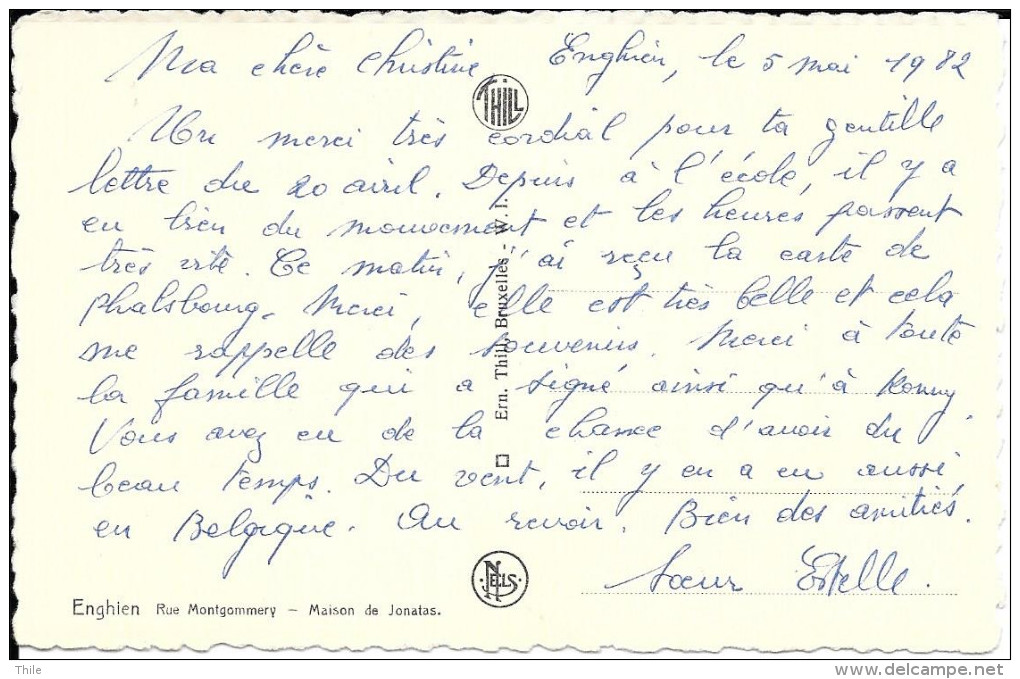 Ma chère Christine Enghien, le 5 mai 1982
THILL
Un merci très cordial pour ta gentille
lettre du 20 avril. Depuis à l'école, il y a
eu bien du mouvement et les heures passent
très vite. Ce matin, j'ai reçu la carte de
Phalsbourg. Merci, elle est très belle et cela
me rappelle des souvenirs. Merci à toute
la famille qui a signé ainsi qu'à Ronny
Vous avez eu de la chance d'avoir du
beau temps. Du vent, il y en a eu aussi
en Belgique. Au revoir. Bien des amitiés.
Sœur Estelle.
Ern. Thill, Bruxelles - W. I.
NELS
Enghien Rue Montgommery – Maison de Jonatas.
Thile
www.delcampe.net